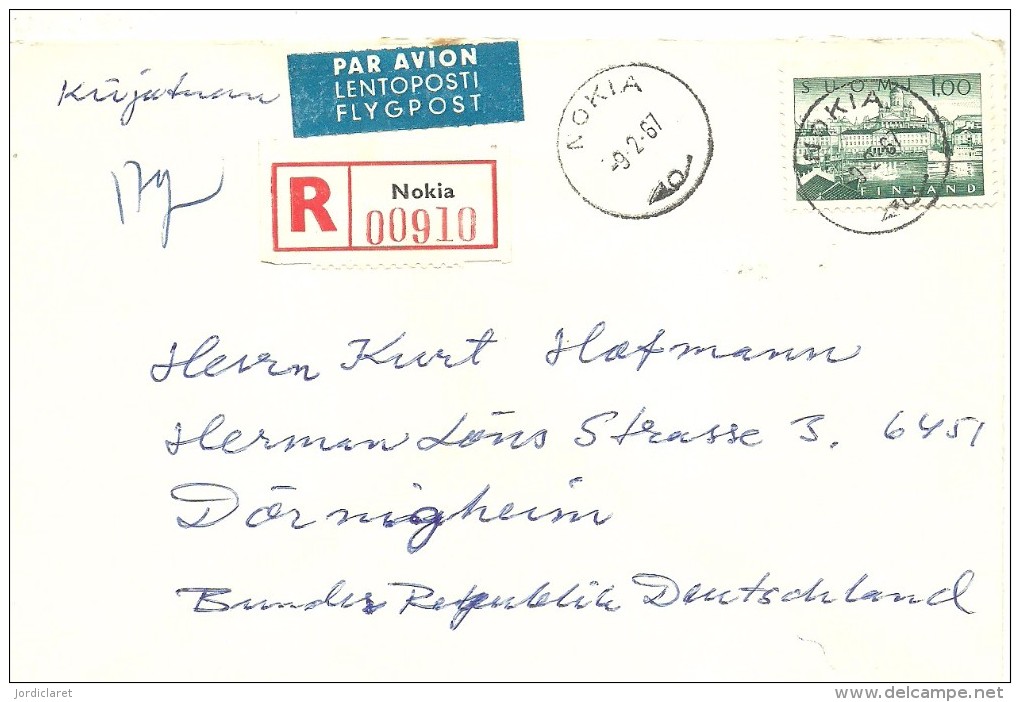 Kirjataan
PAR AVION
LENTOPOSTI
FLYGPOST
R
Nokia
00910
NOKIA
-9.2.67
SUOMI 1.00
NOKIA
FINLAND
Herrn Kurt Hofmann
Herman Löns Strasse 3. 6451
Dörnigheim
Bundes Republik Deutschland
jordiclaret
www.delcampe.net